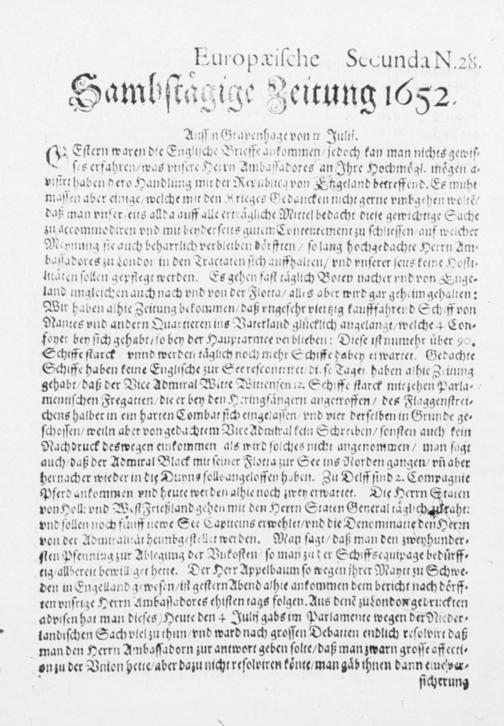 Europæische Secunda N. 28.
Sambstägige Zeitung 1652.
Auss'n Gravenhage von 11 Julii.
GEstern waren die Englische Brieffe ankommen/ jedoch kan man nichts gewis-
ses erfahren/ was unsere Herrn Ambassadores an Ihre Hochmögl. mögen a-
visirt haben dero Handlung mit der Republicq von Engeland betreffend. Es muht
massen aber einige/ welche mit den Krieges Gedancken nicht gerne umbgehen woltē/
daß man unserseits allda auff alle erträgliche Mittel bedacht diese gewichtige Sache
zu accommodiren und mit beyderseits gutem Contentement zu schliessen/ auf welcher
Meynung sie auch beharrlich verbleiben dörfften/ so lang hochgedachte Herrn Am-
bassadores zu London in den Tractaten sich auffhalten/ und unserer seits keine Hosti-
litäten sollen gepflegt werden. Es gehen fast täglich Boten nacher und von Enge-
land imgleichen auch nach und von der Flotta/ alles aber wird gar geheim gehalten:
Wir haben alhie Zeitung bekommen/ daß ungefehr viertzig kauffahrend Schiff von
Nantes und andern Quartieren ins Vaterland glücklich angelangt/ welche 4 Con-
foyer bey sich gehabt/ so bey der Hauptarmee verblieben: Diese ist numehr über 90.
Schiffe starck unnd werden täglich noch mehr Schiffe dabey erwartet. Gedachte
Schiffe haben keine Englische zur See rescontret; diese Tage haben alhie Zeitung
gehabt/ daß der Vice Admiral Witte Wittensen 12. Schiffe starck mit zehen Parla-
mentischen Fregatten/ die er bey den Heringfängern angetroffen/ des Flaggenstrei-
chens halber in ein harten Combat sich eingelassen/ und vier derselben in Grunde ge-
schossen/ weiln aber von gedachtem Vice Admiral kein Schreiben/ sonsten auch kein
Nachdruck deswegen einkommen als wird solches nicht angenommen/ man sagt
auch/ daß der Admiral Black mit seiner Flotta zur See ins Norden gangen/ uñ aber
hernacher wieder in die Duyns solle angeloffen haben. Zu Delff sind 2. Compagnie
Pferd ankommen und heute werden alhie noch zwey erwartet. Die Herrn Staten
von Holl: und West Friesland gehen mit den Herrn Staten General täglich zu raht:
und sollen noch fünff newe See Capiteins erwehlet/ und die Denominatie den Herrn
von der Admiralität heimbgestellt werden. Man sagt/ daß man den zweyhunder-
sten Pfenning zur Ablegung der Unkosten/ so man zu der Schiffsequipage bedürff-
tig/ allbereit bewilliget hette. Der Herr Appelbaum so wegen ihrer Mayst zu Schwe-
den in Engelland gewesen/ ist gestern Abend alhie ankommen dem bericht nach dörff-
ten unsrige Herrn Ambassadores ehisten tags folgen. Aus denē zu London gedruckten
advisen hat man dieses/ Heute den 4 Julii gabs im Parlamente wegen der Nieder-
landischen Sach viel zu thun/ und ward nach grossen Debatten endlich resolvirt daß
man den Herrn Ambassadorn zur antwort geben solte/ daß man zwarn grosse affecti-
on zu der Union hette/ aber dazu nicht resolviren könte/ man gäb ihnen dann eine ver-
sicherung